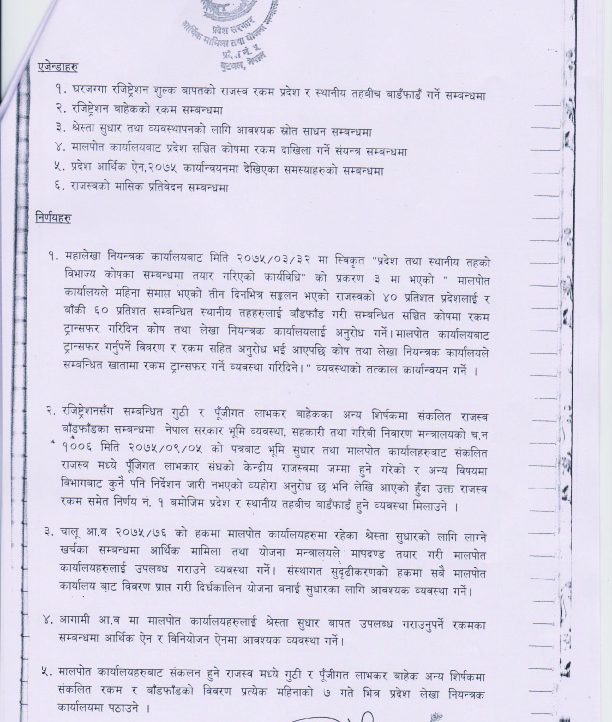 प्रदेश सरकार
आर्थिक मामिला तथा योजना मन्त्रालय
बुटवल, नेपाल
एजेन्डाहरु
१. घरजग्गा रजिष्ट्रेशन शुल्क बापतको राजस्व रकम प्रदेश र स्थानीय तहबीच बाडँफाडँ गर्ने सम्बन्धमा
२. रजिष्ट्रेशन बाहेकको रकम सम्बन्धमा
३. श्रेस्ता सुधार तथा व्यवस्थापनको लागि आवश्यक स्रोत साधन सम्बन्धमा
४. मालपोत कार्यालयबाट प्रदेश सञ्चित कोषमा रकम दाखिला गर्ने संयन्त्र सम्बन्धमा
५. प्रदेश आर्थिक ऐन,२०७५ कार्यान्वयनमा देखिएका समस्याहरुको सम्बन्धमा
६. राजस्वको मासिक प्रतिवेदन सम्बन्धमा
निर्णयहरु
१. महालेखा नियन्त्रक कार्यालयबाट मिति २०७५/०३/३२ मा स्विकृत "प्रदेश तथा स्थानीय तहको
विभाज्य कोषका सम्बन्धमा तयार गरिएको कार्यविधि" को प्रकरण ३ मा भएको " मालपोत
कार्यालयले महिना समाप्त भएको तीन दिनभित्र सङ्कलन भएको राजस्वको ४० प्रतिशत प्रदेशलाई र
बाँकी ६० प्रतिशत सम्बन्धित स्थानीय तहहरुलाई बाँडफाँड गरी सम्बन्धित सञ्चित कोषमा रकम
ट्रान्सफर गरिदिन कोष तथा लेखा नियन्त्रक कार्यालयलाई अनुरोध गर्ने।मालपोत कार्यालयबाट
ट्रान्सफर गर्नुपर्ने विवरण र रकम सहित अनुरोध भई आएपछि कोष तथा लेखा नियन्त्रक कार्यालयले
सम्बन्धित खातामा रकम ट्रान्सफर गर्ने व्यवस्था गरिदिने।" व्यवस्थाको तत्काल कार्यान्वयन गर्ने ।
२. रजिष्ट्रेशनसँग सम्बन्धित गुठी र पूँजीगत लाभकर बाहेकका अन्य शिर्षकमा संकलित राजस्व
बाँडफाँडका सम्बन्धमा नेपाल सरकार भूमि व्यवस्था, सहकारी तथा गरिबी निवारण मन्त्रालयको च.न
१००६ मिति २०७५/०९/०५ को पत्रबाट भूमि सुधार तथा मालपोत कार्यालहरुबाट संकलित
राजस्व मध्ये पूँजिगत लाभकार संघको केन्द्रीय राजस्वमा जम्मा हुने गरेको र अन्य विषयमा
विभागबाट कुनै पनि निर्देशन जारी नभएको व्यहोरा अनुरोध छ भनि लेखि आएको हुँदा उक्त राजस्व
रकम समेत निर्णय नं. १ बमोजिम प्रदेश र स्थानीय तहबीच बाडँफाडँ हुने व्यवस्था मिलाउने ।
३. चालू आ.व २०७५/७६ को हकमा मालपोत कार्यालयहरुमा रहेका श्रेस्ता सुधारको लागि लाग्ने
खर्चका सम्बन्धमा आर्थिक मामिला तथा योजना मन्त्रालयले मापदण्ड तयार गरी मालपोत
कार्यालयहरुलाई उपलब्ध गराउने व्यवस्था गर्ने। संस्थागत सुदृढीकरणको हकमा सबै मालपोत
कार्यालय बाट विवरण प्राप्त गरी दिर्घकालिन योजना बनाई सुधारका लागि आवश्यक व्यवस्था गर्ने।
४. आगामी आ.व मा मालपोत कार्यालयहरुलाई श्रेस्ता सुधार बापत उपलब्ध गराउनुपर्ने रकमका
सम्बन्धमा आर्थिक ऐन र विनियोजन ऐनमा आवश्यक व्यवस्था गर्ने।
५. मालपोत कार्यालयहरुबाट संकलन हुने राजस्व मध्ये गुठी र पूँजीगत लाभकर बाहेक अन्य शिर्षकमा
संकलित रकम र बाँडफाँडको विवरण प्रत्येक महिनाको ७ गते भित्र प्रदेश लेखा नियन्त्रक
कार्यालयमा पठाउने ।